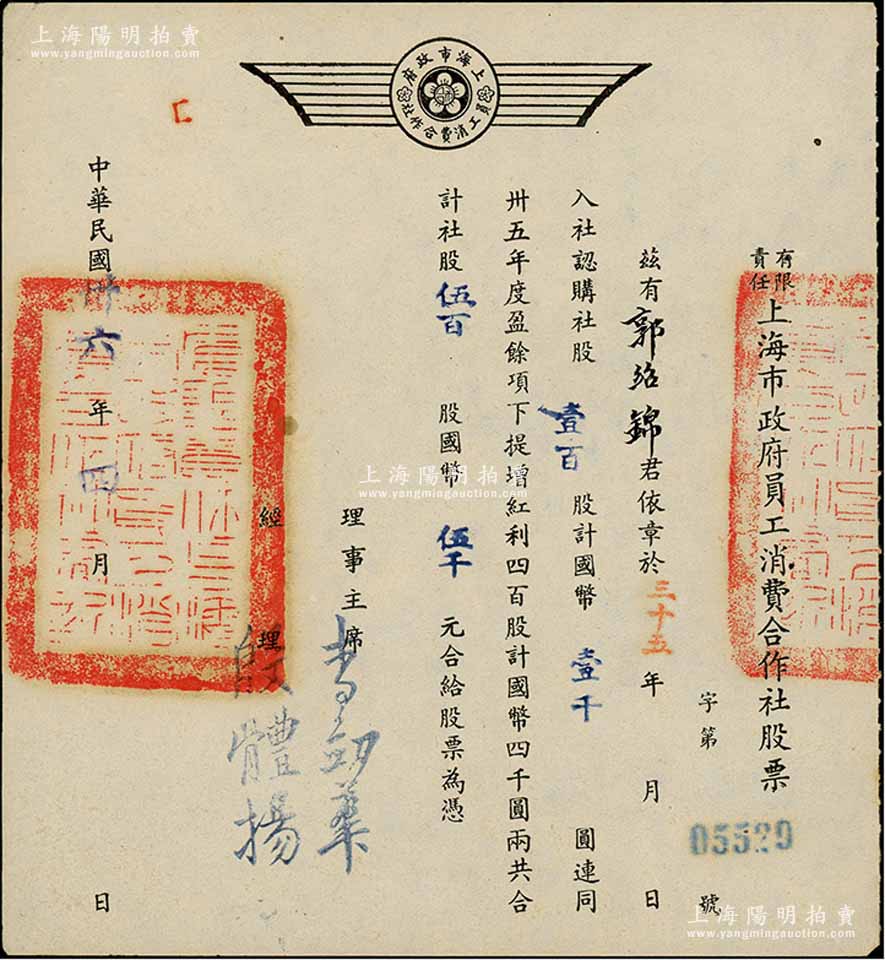 上海陽明拍賣
www.yangmingauction.com
上海市政府
員工消費合作社
有限責任上海市政府員工消費合作社股票
字第05529號
茲有郭紹錦君依章於三十五年 月 日
入社認購社股壹百股計國幣壹千圓連同
卅五年度盈餘項下提增紅利四百股計國幣四千圓兩共合
計社股伍百股國幣伍千元合給股票為憑
理事主席
經理
段體揚
中華民國卅六年四月 日
上海陽明拍賣
www.yangmingauction.com
上海陽明拍賣
www.yangmingauction.com